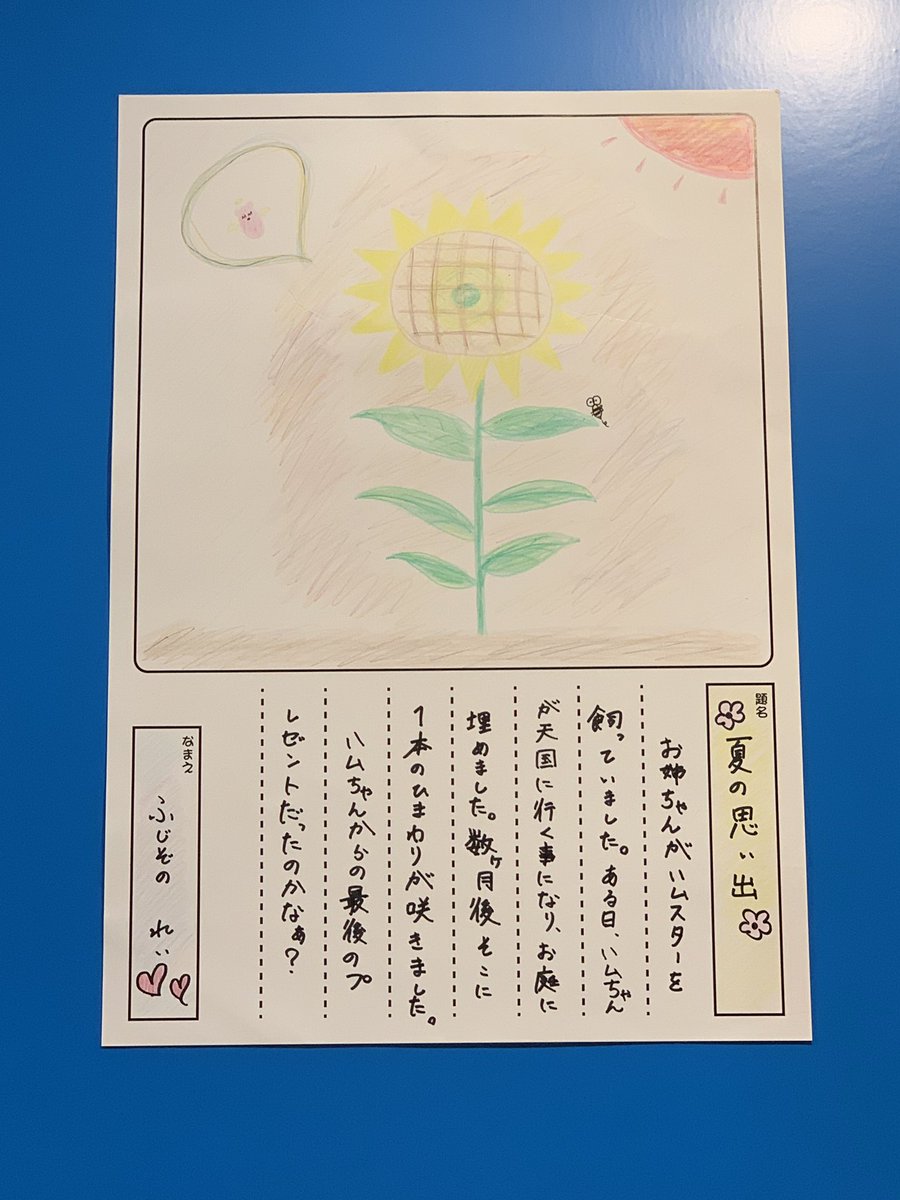 題名
夏の思い出
お姉ちゃんがハムスターを
飼っていました。ある日、ハムちゃん
が天国に行く事になり、お庭に
埋めました。数ヶ月後そこに
1本のひまわりが咲きました。
ハムちゃんからの最後のプ
レゼントだったのかなぁ?
なまえ
ふじぞの れい